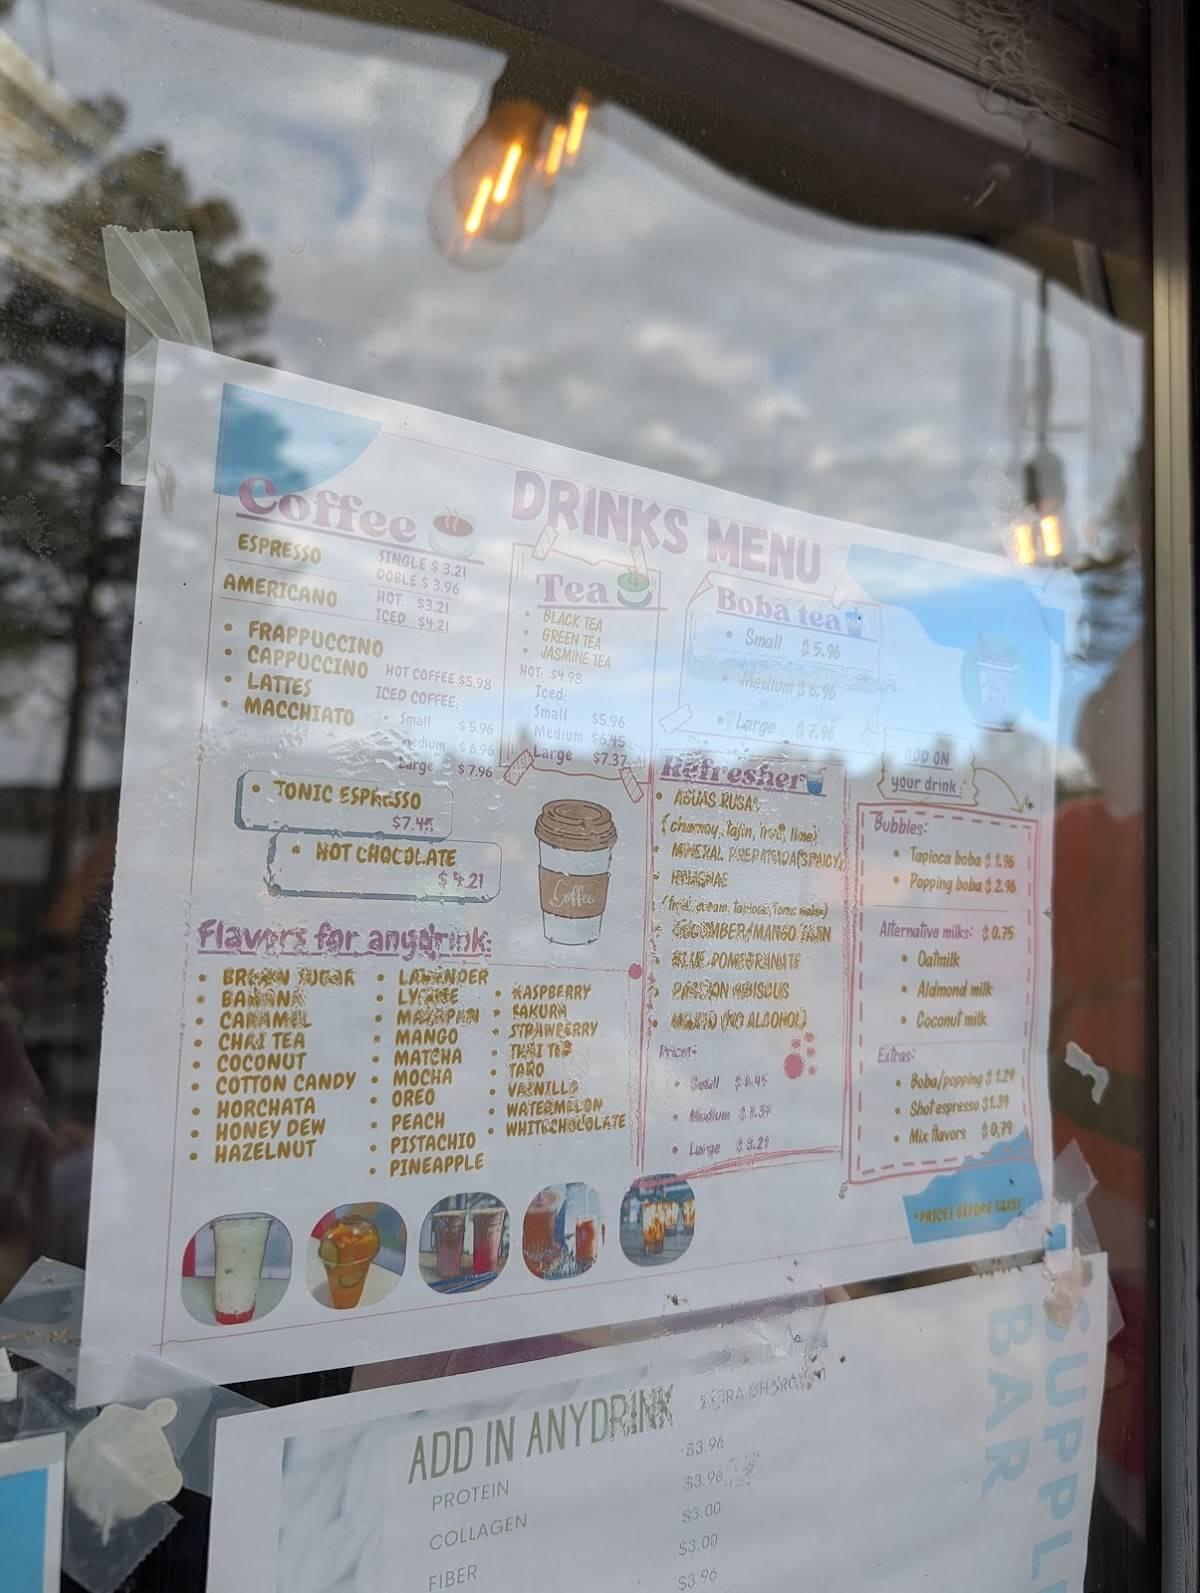 DRINKS MENU
Coffee
ESPRESSO
SINGLE $ 3.21
DOBLE $ 3.96
AMERICANO
HOT. $3.21
ICED $4.21
• FRAPPUCCINO
• CAPPUCCINO
• LATTES
• MACCHIATO
HOT COFFEE $5.98
ICED COFFEE:
• Small $5.96
Medium $6.96
Large $7.96
• TONIC ESPRESSO
$7.45
• HOT CHOCOLATE
$4.21
Coffee
Tea
• BLACK TEA
• GREEN TEA
• JASMINE TEA
HOT: $4.98
Iced:
Small $5.96
Medium $6.45
Large $7.37
Boba tea
• Small $5.96
• Medium $6.96
• Large $7.96
Flavors for anydrink:
• BROWN SUGAR
• BANANA
• CARAMEL
• CHAI TEA
• COCONUT
• COTTON CANDY
• HORCHATA
• HONEY DEW
• HAZELNUT
• LAVENDER
• LYCHEE
• MAZAPAN
• MANGO
• MATCHA
• MOCHA
• OREO
• PEACH
• PISTACHIO
• PINEAPPLE
• RASPBERRY
• SAKURA
• STRAWBERRY
• THAI TEA
• TARO
• VAINILLA
• WATERMELON
• WHITECHOCOLATE
Refresher
• AGUAS RUSAS
(chamoy, Tajin, fruit, lime)
• MINERAL PREPARADA(SPICY)
•
(fruit, cream, tapioca, Tonic water)
• CUCUMBER/MANGO TAJIN
• BLUE POMEGRANATE
• PASSION HIBISCUS
• MOJITO (NO ALCOHOL)
Prices:
• Small
• Medium
• Large
ADD ON
your drink:
Bubbles:
• Tapioca boba $ 1.96
• Popping boba $ 2.96
Alternative milks: $ 0.75
• Oatmilk
• Aldmond milk
• Coconut milk
Extras:
• Boba/popping $ 1.29
• Shot espresso $1.39
• Mix flavors $ 0.79
*PRICES BEFORE TAXES
ADD IN ANYDRINK
PROTEIN
COLLAGEN
FIBER
$3.96
$3.96
$3.00
$3.00
$3.96
BAR